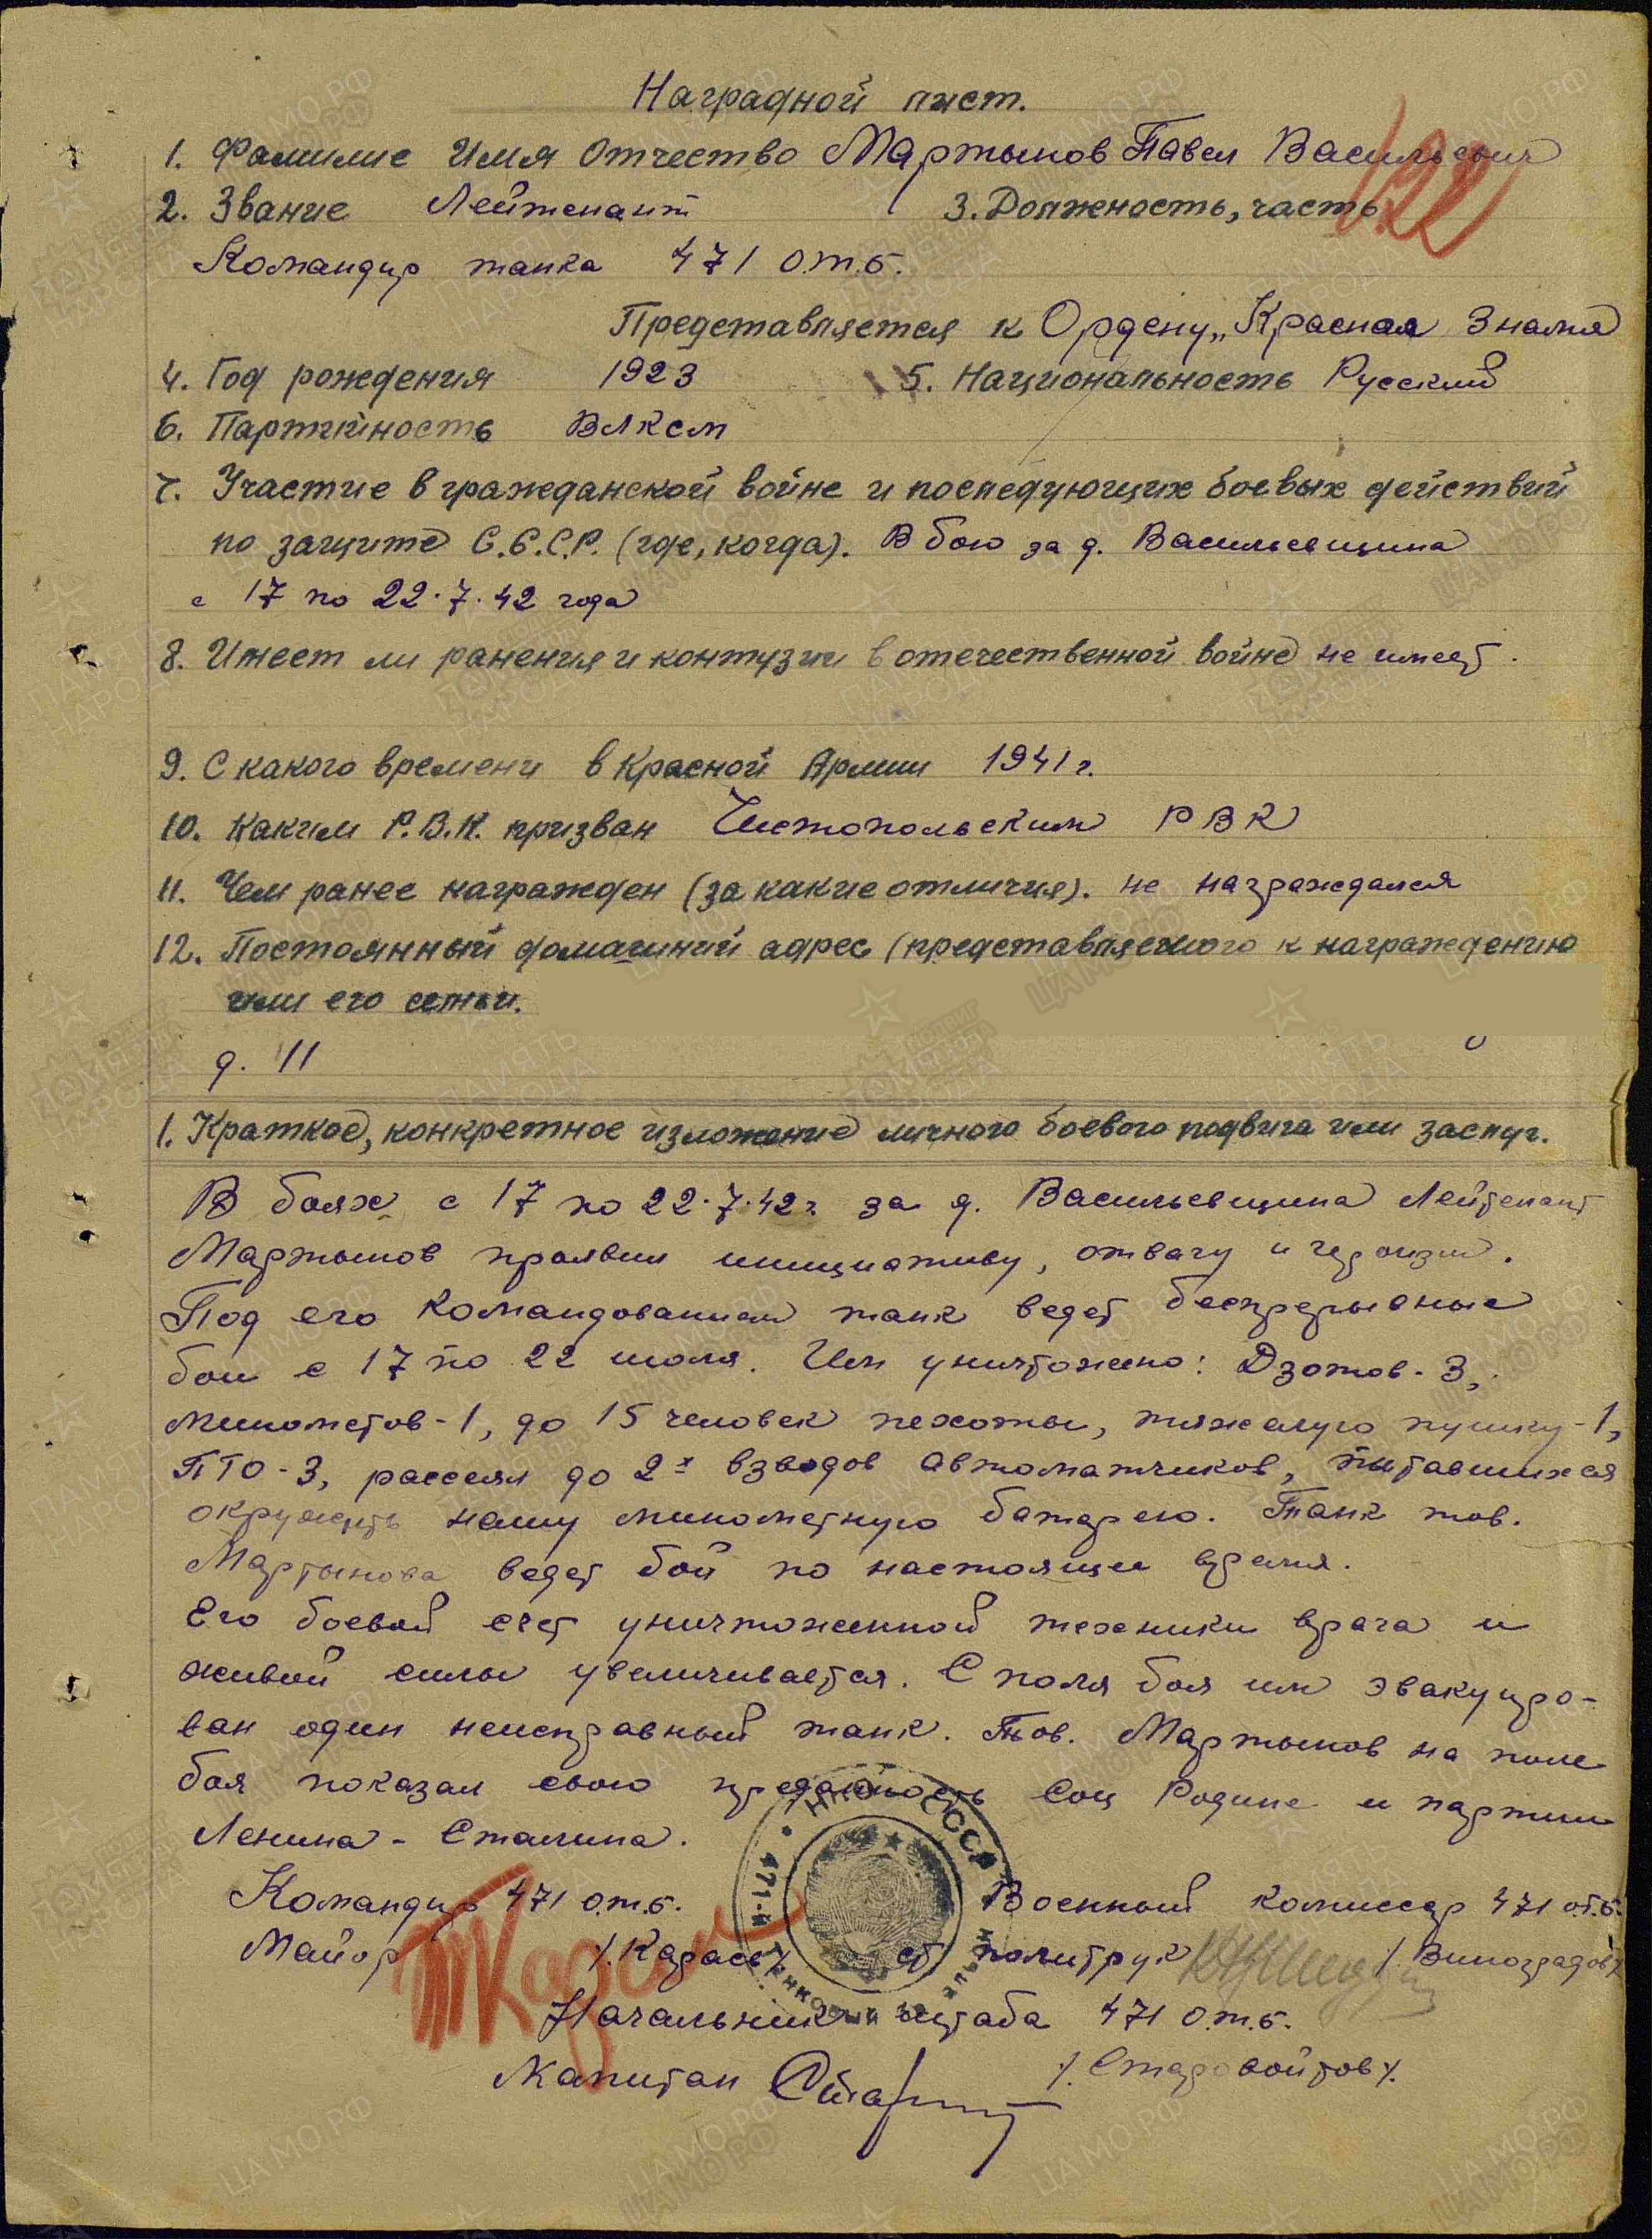 Наградной лист.
122
1. Фамилие Имя Отчество Мартынов Павел Васильевич
2. Звание Лейтенант 3. Должность, часть
Командир танка 471 о.т.б.
Представляется к Ордену „Красная Знамя
4. Год рождения 1923 5. Национальность Русский
6. Партийность ВЛКСМ
7. Участие в гражданской войне и последующих боевых действий
по защите С.С.С.Р. (где, когда). В бою за д. Васильевщина
с 17 по 22.7.42 года
8. Имеет ли ранения и контузии в отечественной войне не имеет.
9. С какого времени в Красной Армии 1941 г.
10. Каким Р.В.К. призван Чистопольским РВК
11. Чем ранее награжден (за какие отличия). не награждался
12. Постоянный домашний адрес (представляемого к награждению
или его семьи.
д. 11
1. Краткое, конкретное изложение личного боевого подвига или заслуг.
В боях с 17 по 22.7.42 г. за д. Васильевщина Лейтенант
Мартынов проявил инициативу, отвагу и героизм.
Под его командованием танк ведет беспрерывные
бои с 17 по 22 июля. Им уничтожено: Дзотов - 3,
минометов - 1, до 15 человек пехоты, тяжелую пушку - 1,
ПТО - 3, рассеял до 2х взводов автоматчиков, пытавшихся
окружить нашу минометную батарею. Танк тов.
Мартынова ведет бой по настоящее время.
Его боевой счет уничтоженной техники врага и
живой силы увеличивается. С поля боя им эвакуиро-
ван один неисправный танк. Тов. Мартынов на поле
боя показал свою преданность Соц Родине и партии
Ленина - Сталина.
НКО СССР 471-й
Командир 471 о.т.б. Военный комиссар 471 о.т.б.
Майор /. Карасев/ ст политрук /. Виноградов/
Начальник штаба 471 о.т.б.
Капитан /. Старовойтов /.